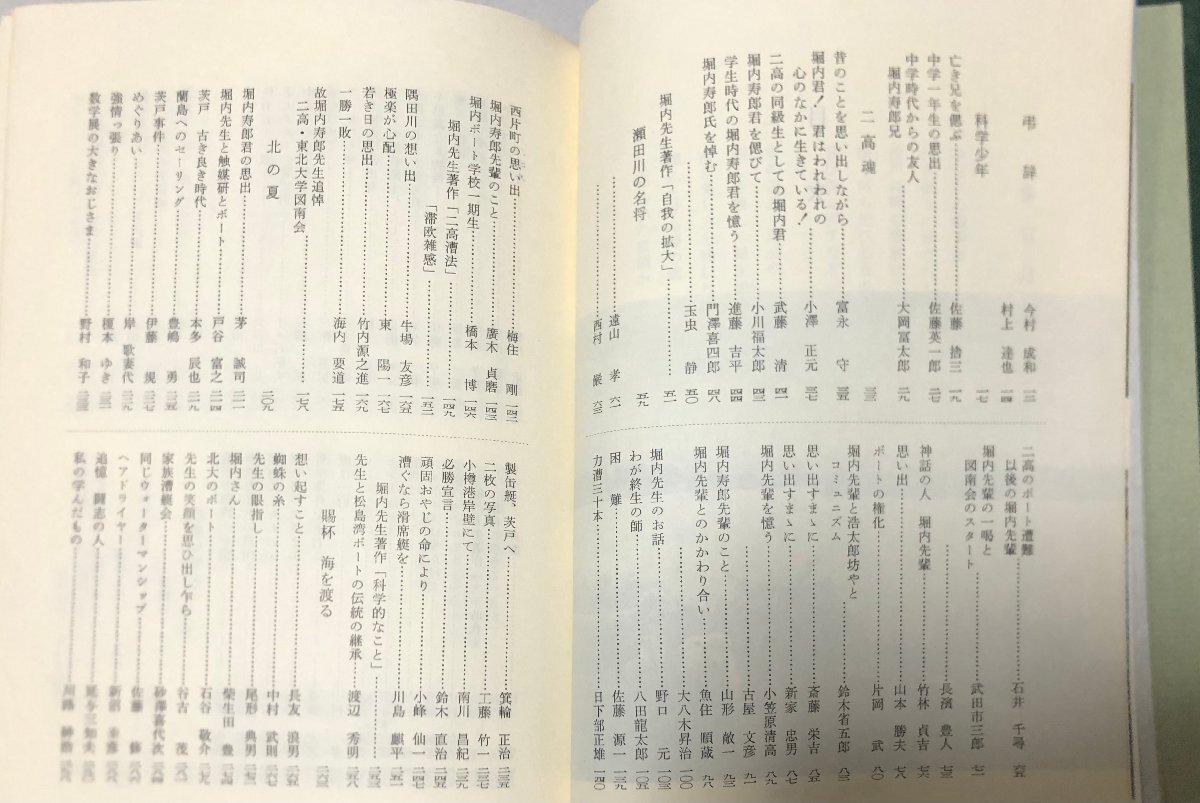 弔辞
今村 成和 一三
村上 達也 一四
科学少年 一七
亡き兄を偲ぶ 佐藤 捨三 一九
中学一年生の思出 佐藤英一郎 二七
中学時代からの友人
堀内寿郎兄 大岡冨太郎 二九
二高魂 三三
昔のことを思い出しながら 富永 守 三五
堀内君！ 君はわれわれの
心のなかに生きている！ 小澤 正元 三七
二高の同級生としての堀内君 武藤 清 四二
堀内寿郎君を偲びて 小川福太郎 四三
学生時代の堀内寿郎君を憶う 進藤 吉平 四四
堀内寿郎氏を悼む 門澤喜四郎 四八
玉虫 静 五〇
堀内先生著作「自我の拡大」 五一
瀬田川の名将 五九
遠山 孝 六一
西村 㘴 六三
二高のボート遭難
以後の堀内先輩 石井 千尋 六五
堀内先輩の一喝と
図南会のスタート 武田市三郎 七一
長濱 豊人 七三
神話の人 堀内先輩 竹林 貞吉 七六
思い出 山本 勝夫 七八
ボートの権化 片岡 武 八〇
堀内先輩と浩太郎坊やと
コミュニズム 鈴木省五郎 八三
思い出すまゝに 斎藤 栄吉 八五
思い出すまゝに 新家 忠男 八七
堀内先輩を憶う 小笠原清高 八九
古屋 文彦 九二
堀内寿郎先輩のこと 山形 敞一 九三
堀内先輩とのかかわり合い 魚住 順蔵 九八
大八木昇治 一〇〇
堀内先生のお話 野口 元 一〇三
わが終生の師 八田龍太郎 一〇五
困難 佐藤 源一 一三九
力漕三十本 日下部正雄 一四〇
西片町の思い出 梅住 剛 一四二
堀内寿郎先輩のこと 廣木 貞磨 一四三
堀内ボート学校一期生 橋本 博 一四六
堀内先生著作「二高漕法」 一四九
「滞欧雑感」 一五二
隅田川の想い出 牛場 友彦 一六五
極楽が心配 東 陽一 一六七
若き日の思出 竹内源之進 一六九
一勝一敗 海内 要道 一七五
故堀内寿郎先生追悼
二高・東北大学図南会 一七八
北の夏 二〇九
堀内寿郎君の思出 茅 誠司 二一一
堀内先生と触媒研とボート 戸谷 富之 二一四
茨戸 古き良き時代 本多 辰也 二一九
蘭島へのセーリング 豊嶋 勇 二二五
茨戸事件 伊藤 規 二二七
めぐりあい 岸 歌妻代 二二九
強情っ張り 榎本 ゆき
数学展の大きなおじさま 野村 和子
製缶艇、茨戸へ 箕輪 正治 二三五
二枚の写真 工藤 竹一 二三七
小樽港岸壁にて 南川 昌紀 二三九
必勝宣言 鈴木 直治 二四五
頑固おやじの命により 小峰 仙一 二四七
漕ぐなら滑席艇を 川島 麒平
堀内先生著作「科学的なこと」
先生と松島湾ボートの伝統の継承 渡辺 秀明 二五八
賜杯 海を渡る 二六三
想い起すこと 長友 浪男 二六五
蜘蛛の糸 中村 武則 二六七
先生の眼指し 尾形 典男
堀内さん 柴生田 豊
北大のボート 石谷 敬介
先生の笑顔を思ひ出し乍ら 谷吉 茂
家族漕艇会 砂澤喜代次
同じウォーターマンシップ 佐藤 修
ヘアドライヤー
追憶 闘志の人
私の学んだもの